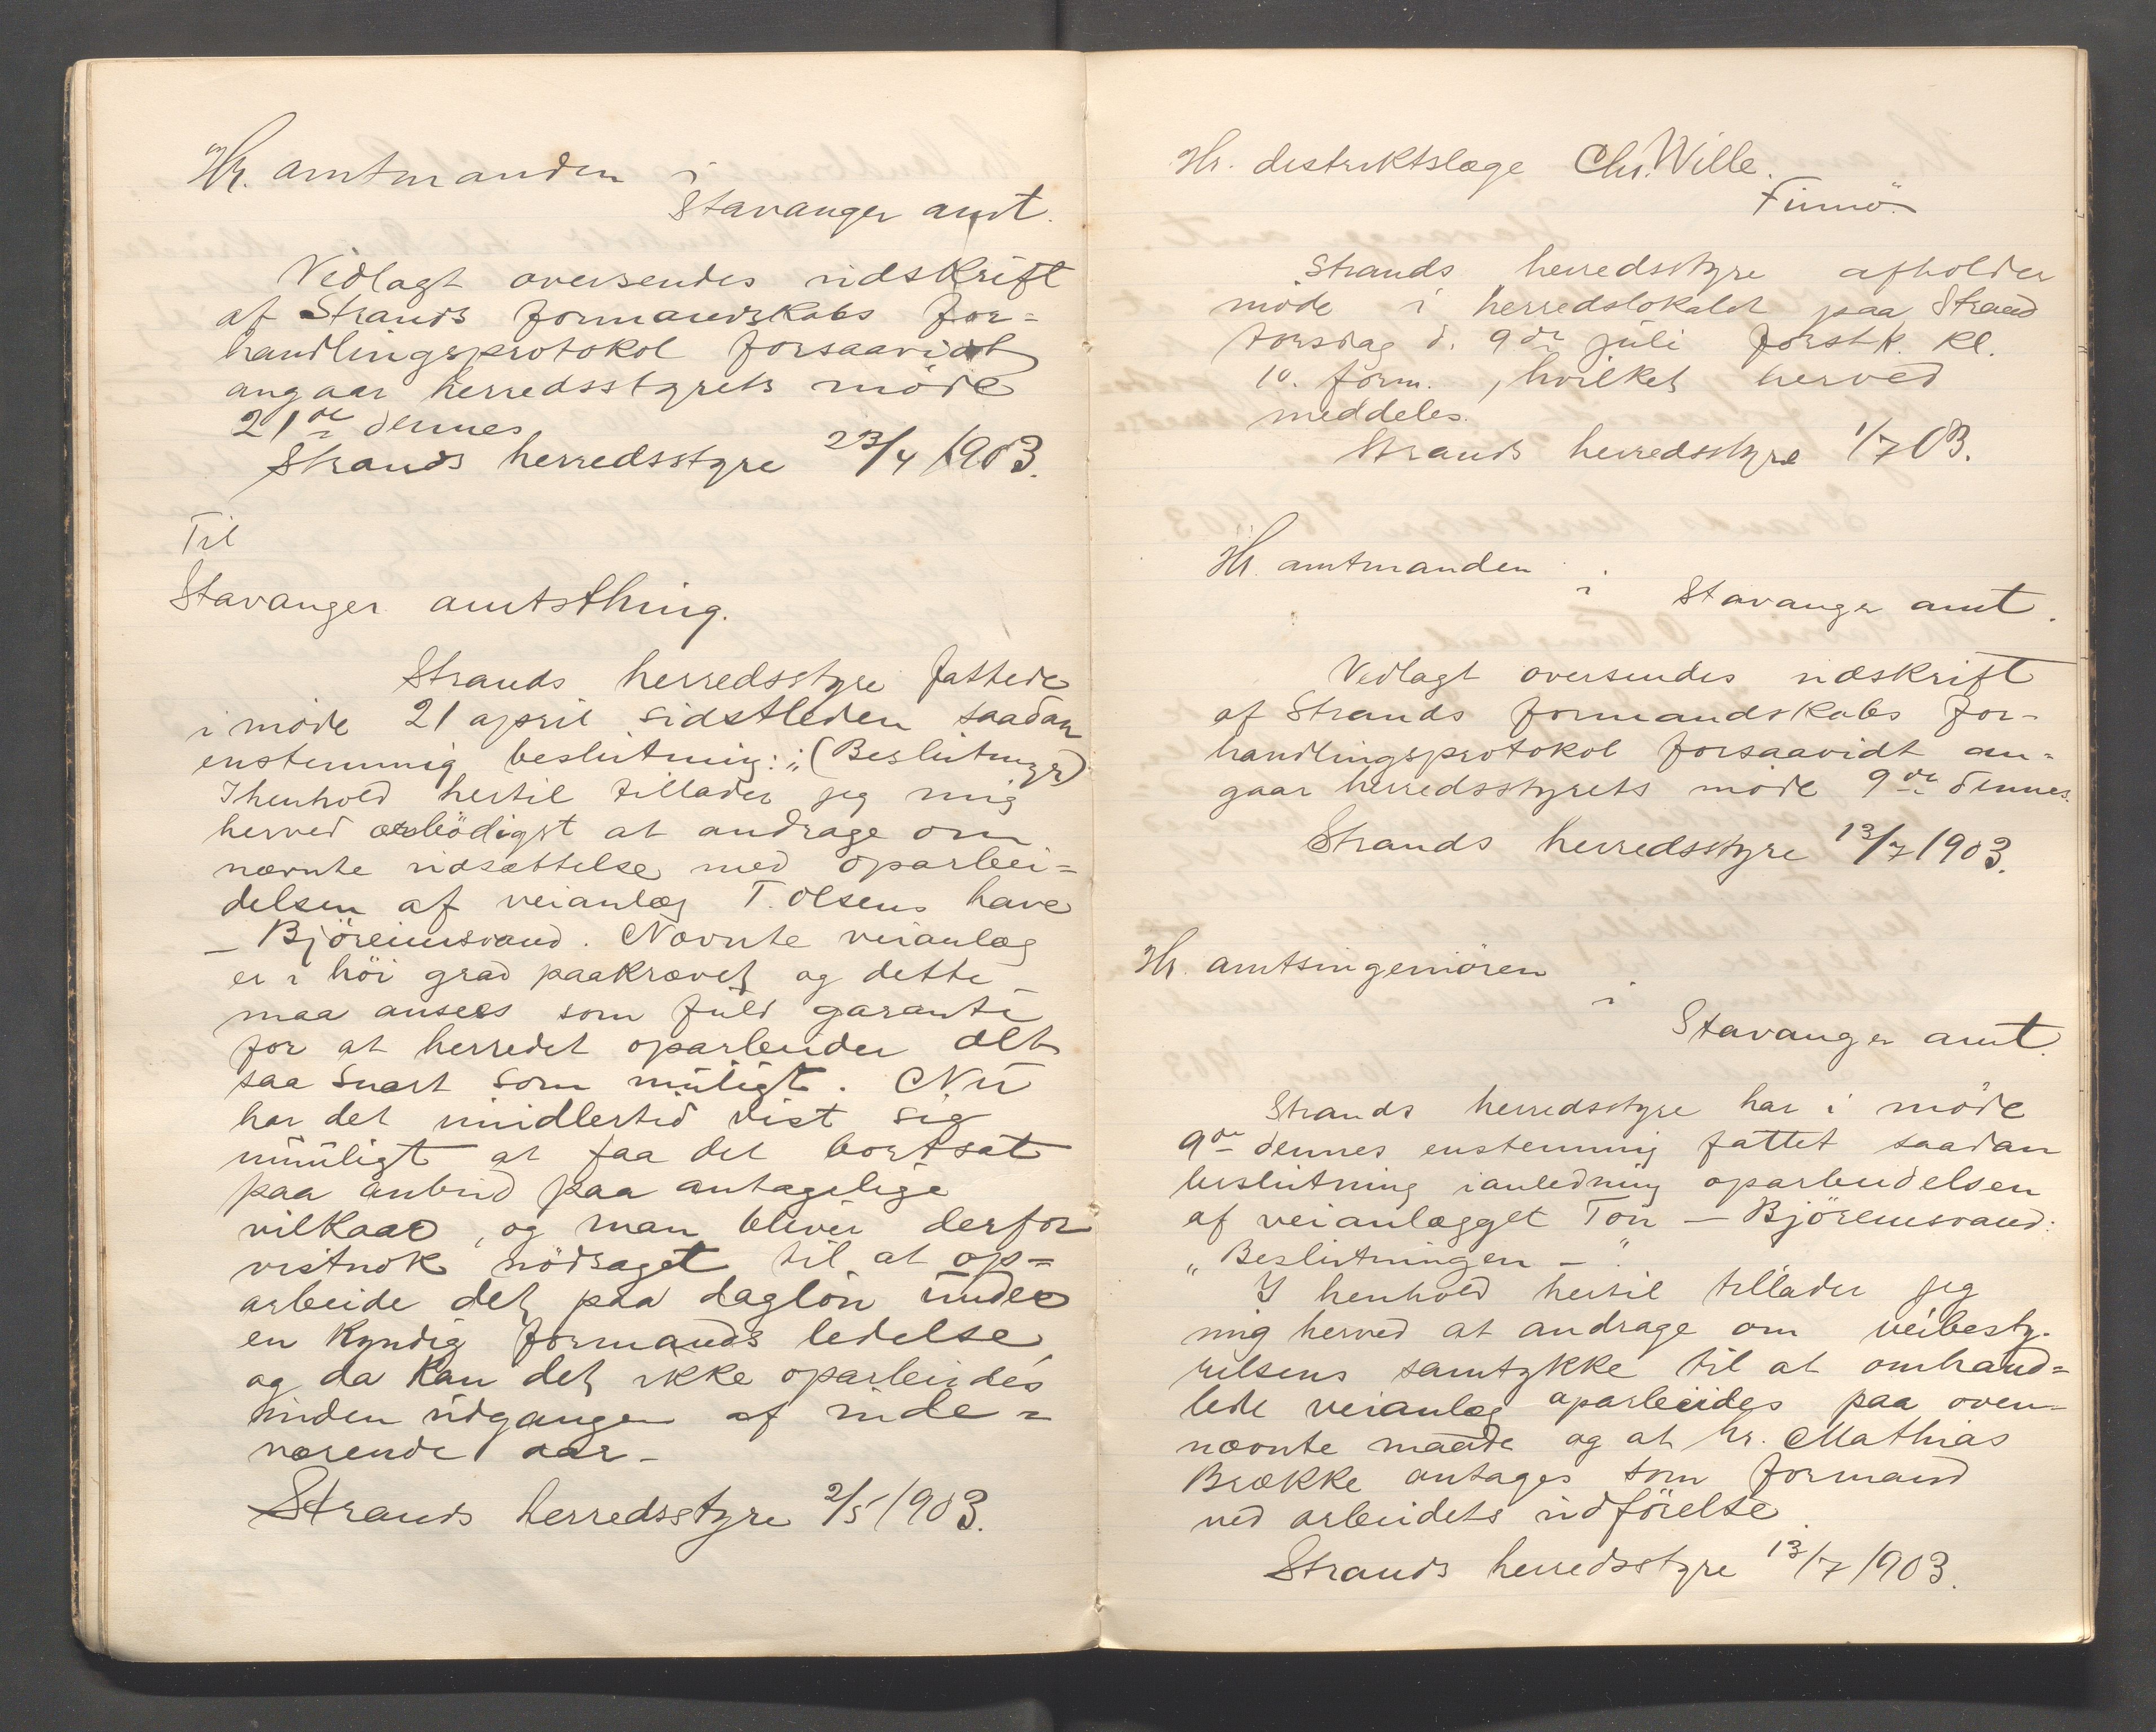 Hr. amtmanden i
Stavanger amt.
Vedlagt oversendes udskrift
af Strands formandskabs for=
handlingsprotokol forsaavidt
angaar herredsstyrets möde
21de dennes
Strands herredsstyre 23/4 1903.
Til
Stavanger amtsthing.
Strands herredsstyre fattede
i möde 21 april sidstleden saadan
enstemmig beslutning: „(Beslutnger)
I henhold hertil tillader jeg mig
herved ærbödigst at andrage om
nævnte udsættelse med oparbei=
delsen af veianlæg T. Olsens have
– Björeimsvand. Nævnte veianlæg
er i höi grad paakrævet og dette
maa ansees som fuld garanti
for at herredet oparbeider det
saa snart som muligt. Nu
har det imidlertid vist sig
umuligt at faa det bortsat
paa anbud paa antagelige
vilkaar, og man bliver derfor
vistnok nödsaget til at op=
arbeide det paa daglön under
en kyndig formands ledelse,
og da kan det ikke oparbeides
inden udgangen af inde=
værende aar.
Strands herredsstyre 2/5 1903.
Hr. destriktslæge Chr. Wille.
Finnö.
Strands herredsstyre afholder
möde i herredslokalet paa Strand
torsdag d. 9de juli förstk. kl.
10. form., hvilket herved
meddeles.
Strands herredsstyre 1/7 03.
Hr. amtmanden
i Stavanger amt.
Vedlagt oversendes udskrift
af Strands formandskabs for-
handlingsprotokol forsaavidt an=
gaar herredsstyrets möde 9de dennes.
Strands herredsstyre 13/7 1903.
Hr. amtsingeniören
i
Stavanger amt.
Strands herredsstyre har i möde
9de dennes enstemmig fattet saadan
beslutning ianledning oparbeidelsen
af veianlægget Tou – Björeimsvand:
„Beslutningen – "
I henhold hertil tillader jeg
mig herved at andrage om veibesty-
relsens samtykke til at omhand=
lede veianlæg oparbeides paa oven=
nævnte maade og at hr. Mathias
Brække antages som formand
ved arbeidets udförelse.
Strands herredsstyre 13/7 1903.